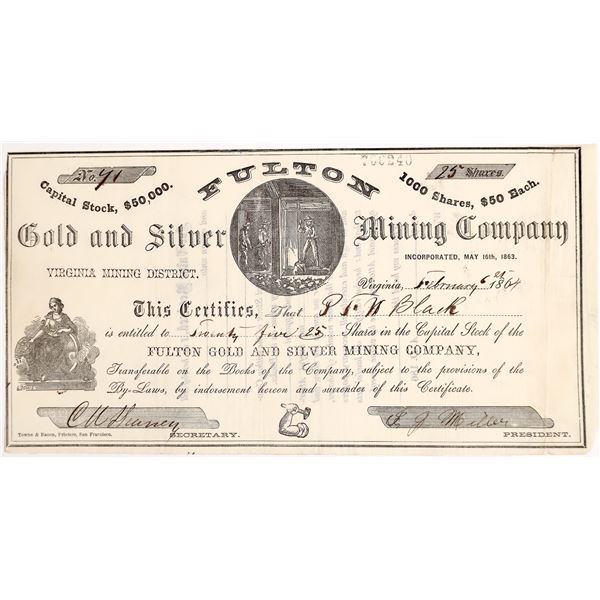 700240
No. 91
25 Shares.
Capital Stock, $50,000.
FULTON
1000 Shares, $50 Each.
Gold and Silver Mining Company
INCORPORATED, MAY 16th, 1863.
VIRGINIA MINING DISTRICT.
Virginia, February 1864
This Certifies, That P S W Black
is entitled to Twenty five 25 Shares in the Capital Stock of the
FULTON GOLD AND SILVER MINING COMPANY,
Transferable on the Books of the Company, subject to the provisions of the
By-Laws, by indorsement hereon and surrender of this Certificate.
Towne & Bacon, Printers, San Francisco.
SECRETARY.
PRESIDENT.